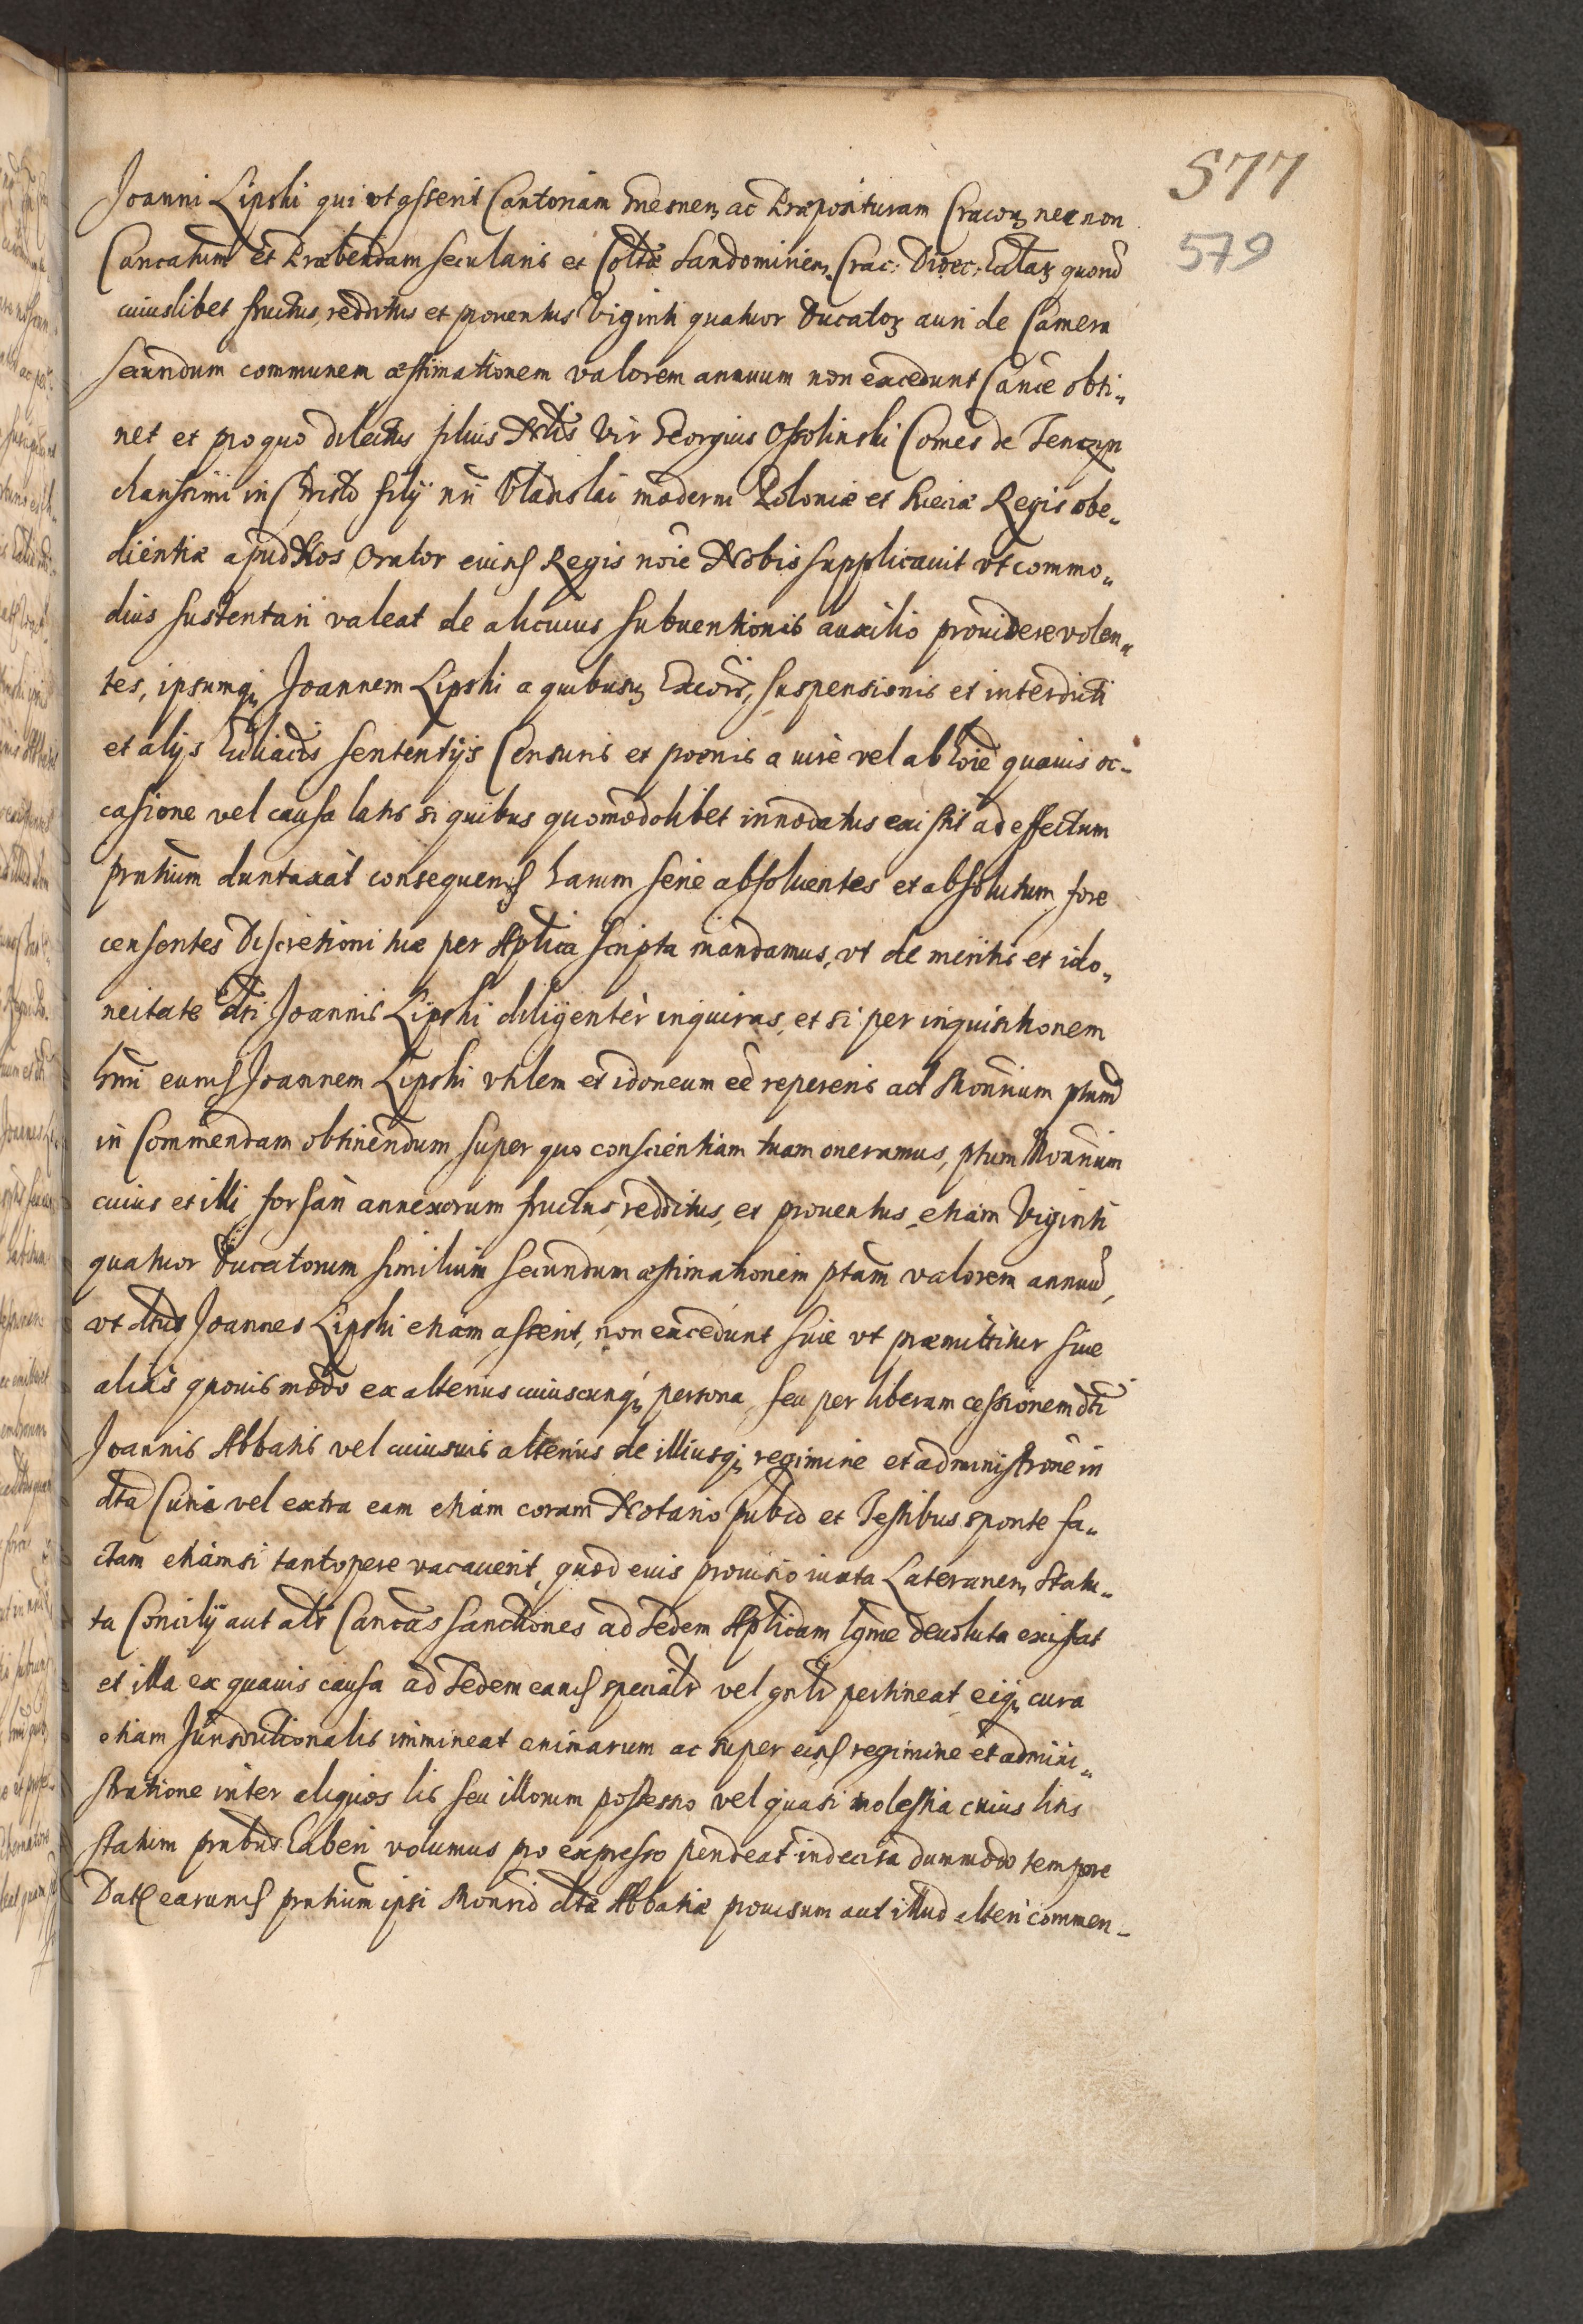 577
579
Joanni Lipski qui vt asserit Cantoriam Gnesnen; ac Præposituram Cracou; nec non
Canc̃atum et Præbendam secularis et Coltæ Sandomirien; Crac: Dioec: Eccl̃ar; quorũ
cuiuslibet fructus, redditus et prouentus Viginti quatuor Ducator; auri de Camera
secundum communem æstimationem valorem annuum non excedunt Canc̃e obti„
net et pro quo dilectus filius Nol̃is Vir Georgius Ossolinski Comes de Tenczyn
charissimi in Christo filij nr̃i Vladislai moderni Poloniæ et Sueciæ Regis obe„
dientiæ apud Nos Orator eiusd Regis noĩe Nobis supplicauit vt commo„
dius sustentari valeat de alicuius subuentionis auxilio prouidere volen„
tes, ipsumq; Joannem Lipski a quibusu; Excoĩs, suspensionis et interdicti
et alijs Eccl̃iacis sententijs Censuris et poenis a iure vel ab hoĩe quauis oc„
casione vel causa latis si quibus quomodolibet innodatus existit ad effectum
pñtium duntaxat consequend harum serie absoluentes et absolutum fore
censentes Discretioni tuæ per Aplica scripta mandamus, vt de meritis et ido„
neitate dti Joannis Lipski diligenter inquiras, et si per inquisitionem
hmĩ eumd Joannem Lipski vtilem et idoneum eẽ repereris ad Monrium ptum
in Commendam obtinendum, super quo conscientiam tuam oneramus, ptum Monrium
cuius et illi forsan annexorum fructus, redditus, et prouentus, etiam Viginti
quatuor Ducatorum similium secundum æstimationem ptam valorem annuũ,
vt dtus Joannes Lipski etiam asserit, non excedunt siue vt præmittitur siue
alias quouis modo ex alterius cuiuscunq; persona, seu per liberam cessionem dti
Joannis Abbatis vel cuiusuis alterius de illiusq; regimine et administrõne in
dta Curia vel extra eam etiam coram Notario pubco et Testibus sponte fa„
ctam etiamsi tantopere vacauerit, quod eius prouisio iuxta Lateranen; Statu„
ta Concilij aut als Cancas sanctiones ad Sedem Aplicam lgme deuoluta existat
et illa ex quauis causa ad Sedem eamd specialr vel gnlr pertineat, eiq; cura
etiam Jurisdictionalis immineat animarum ac super eisd regimine et admini„
stratione inter aliquos lis seu illorum possessio vel quasi molestia cuius litis
statum pñtibus haberi volumus pro expresso pendeat indecisa dummodo tempore
Dat earumd pñtium ipsi Monrio dtæ Abbatiæ prouisum aut illud alteri commen„